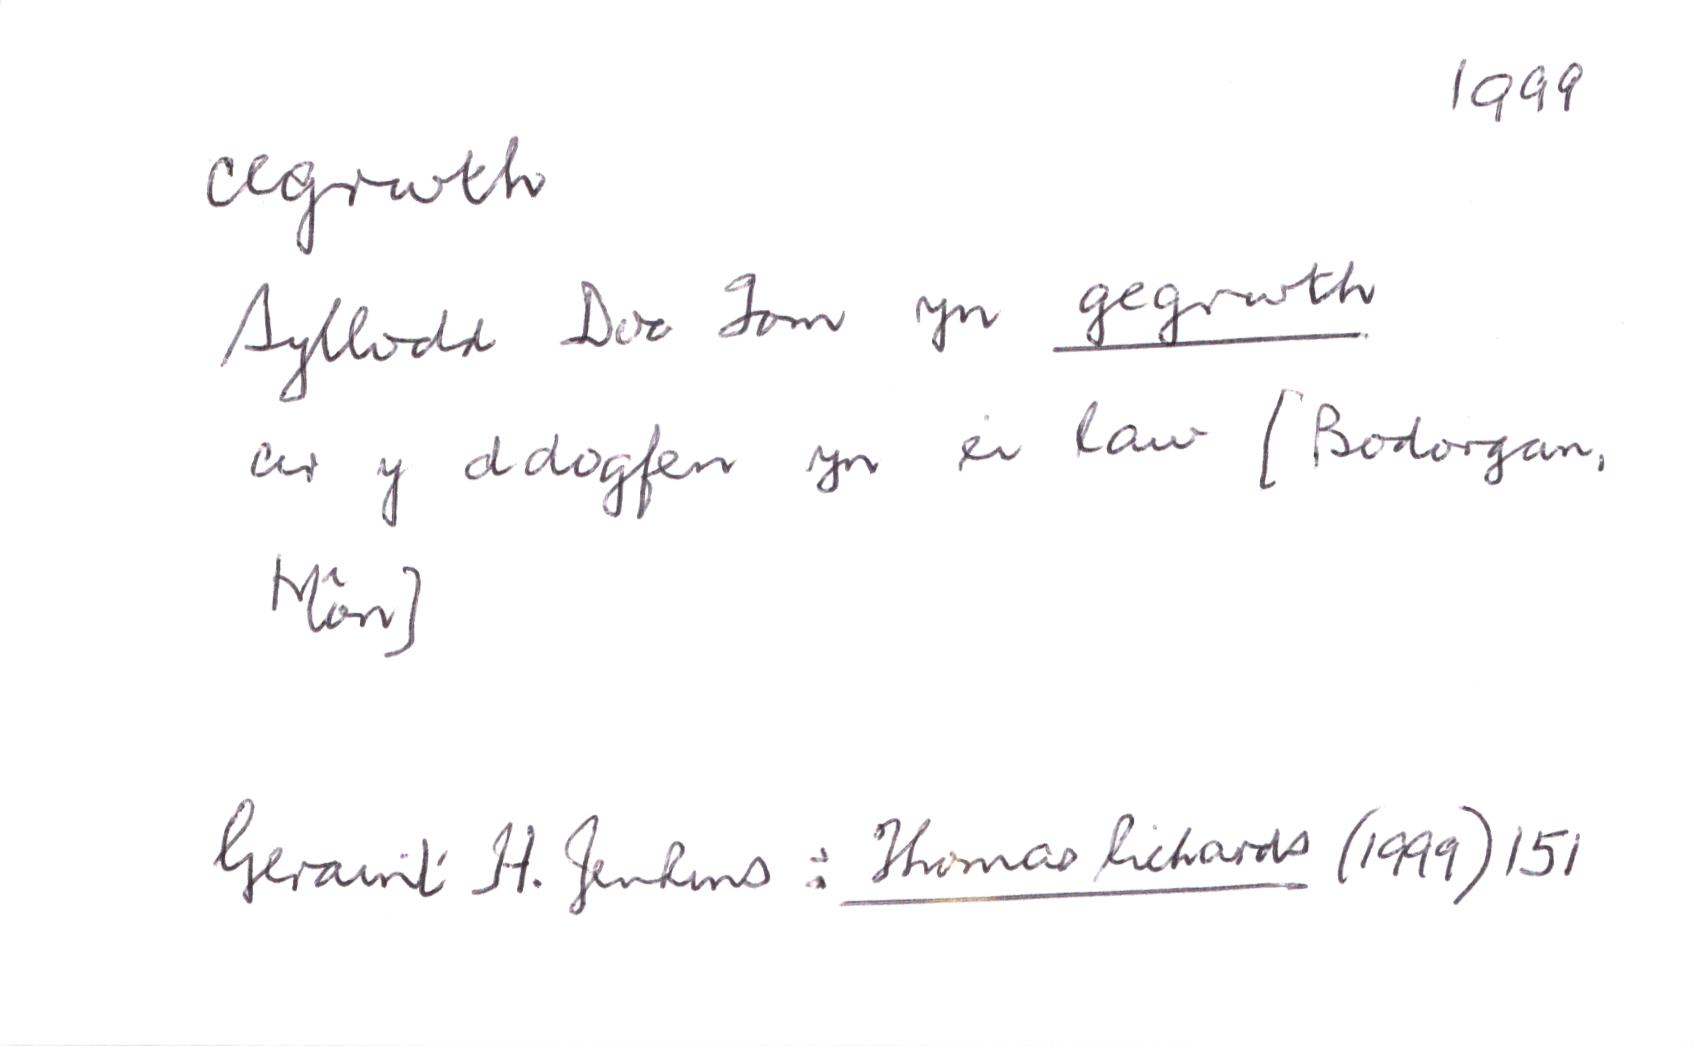 1999
cegrwth
Syllodd Doc Tom yn gegrwth
ar y ddogfen yn ei law [Bodorgan,
Môn]
Geraint H. Jenkins : Thomas Richards (1999) 151